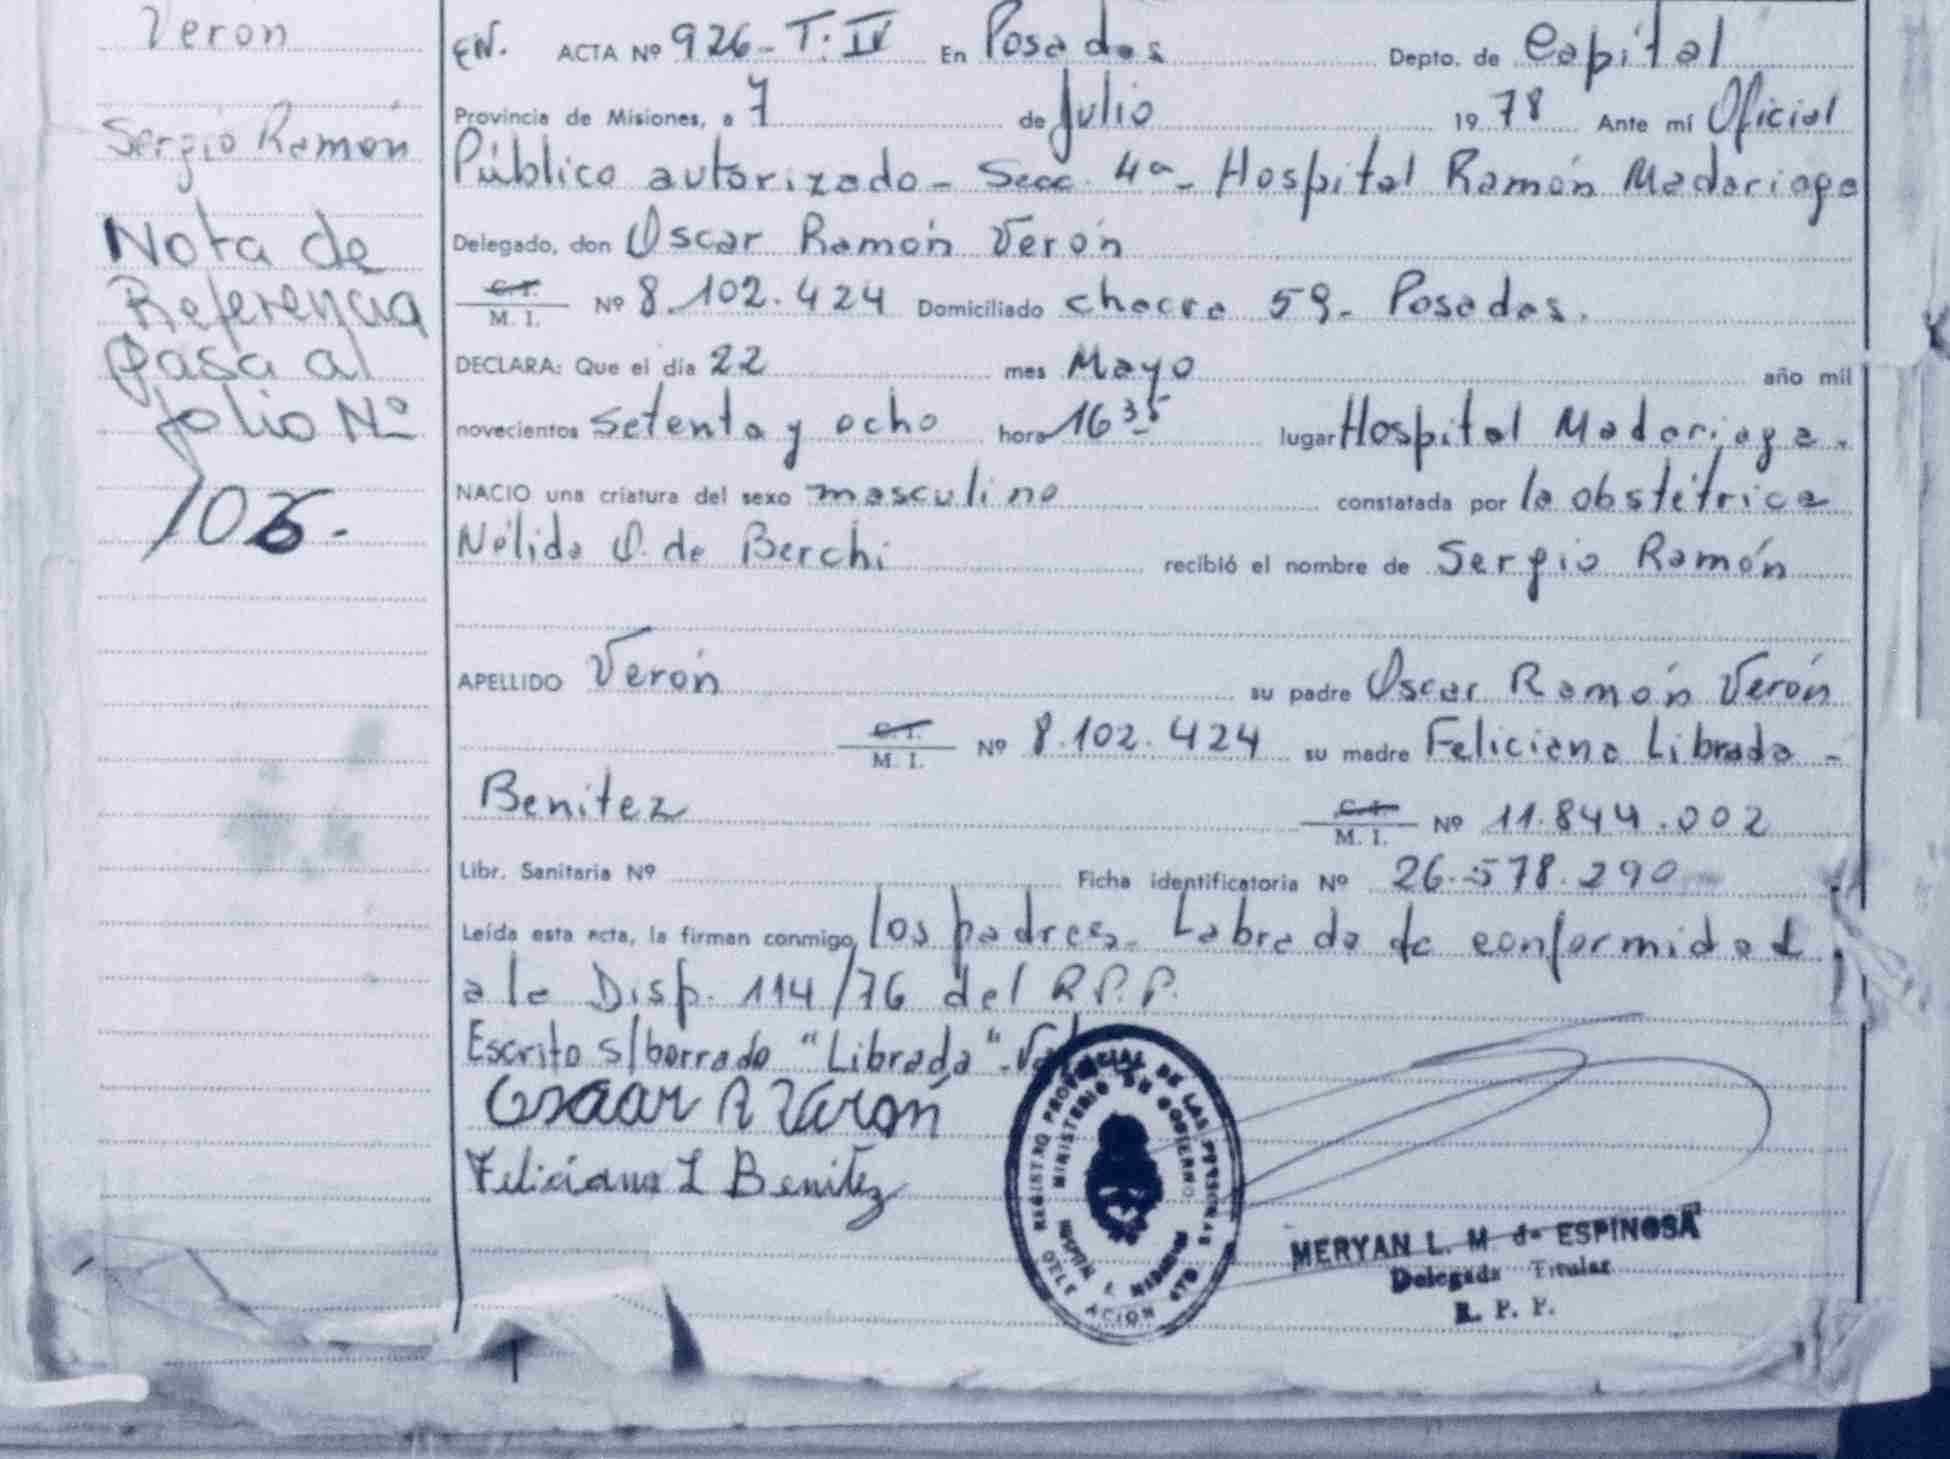 Verón
Sergio Ramón
Nota de
Referencia
pasa al
folio Nº
106.-
EN. ACTA Nº 926 - T: IV En Posadas Depto. de Capital
Provincia de Misiones, a 7 de Julio 19 78 Ante mí Oficial
Público autorizado - Secc. 4ª - Hospital Ramón Madariaga
Delegado, don Oscar Ramón Verón
C. I. M. I. Nº 8.102.424 Domiciliado chacra 59 - Posadas.
DECLARA: Que el día 22 mes Mayo año mil
novecientos setenta y ocho hora 16 35 lugar Hospital Madariaga.
NACIO una criatura del sexo masculino constatada por la obstétrica
Nélida O. de Berchi recibió el nombre de Sergio Ramón
APELLIDO Verón su padre Oscar Ramón Verón
C. I. M. I. Nº 8.102.424 su madre Feliciana Librada -
Benitez C. I. M. I. Nº 11.844.002
Libr. Sanitaria Nº Ficha identificatoria Nº 26.578.290
Leída esta acta, la firman conmigo, los padres. Labrada de conformidad
a la Disp. 114/76 del R.P.P.
Escrito s/borrado "Librada" -
Oscar R Verón
Feliciana L Benitez
REGISTRO PROVINCIAL DE LAS PERSONAS
MINISTERIO DE GOBIERNO
MERYAN L. M. de ESPINOSA
Delegada Titular
R. P. P.